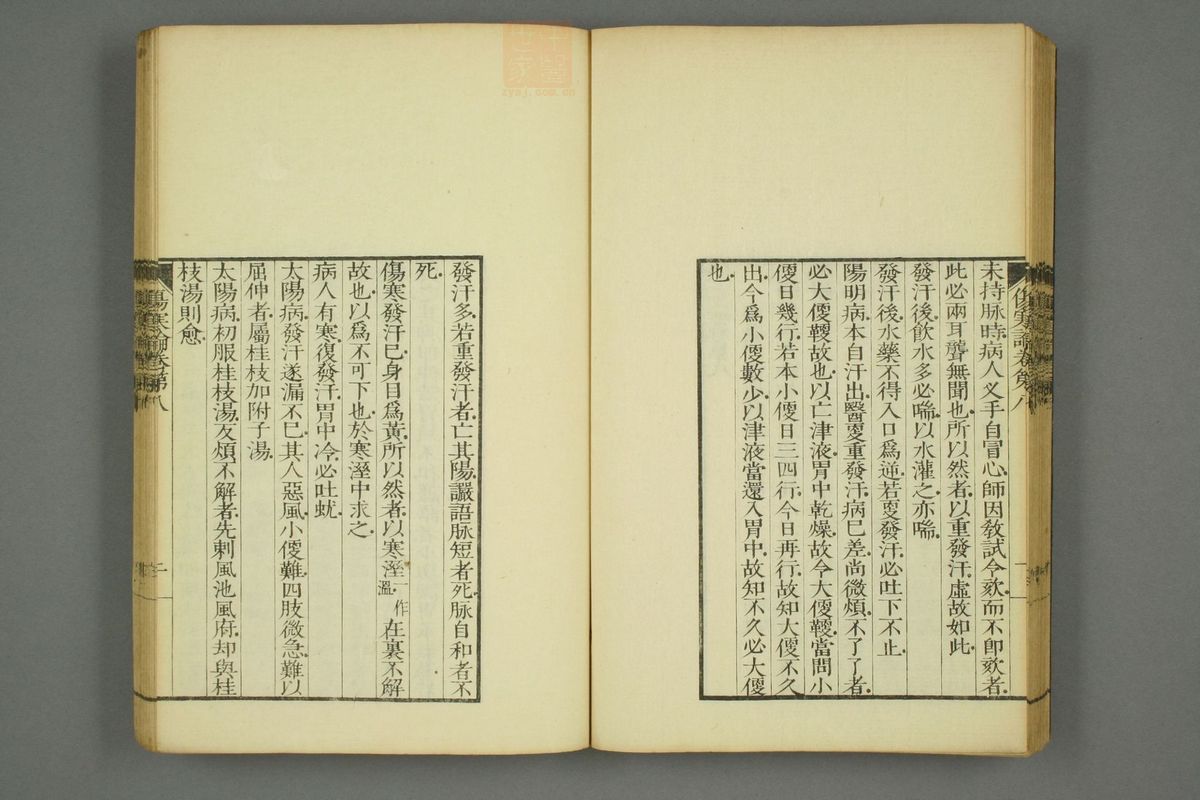 未持脉時病人叉手自冒心師因敎試令欬而不卽欬者
此必兩耳聾無聞也所以然者以重發汗虛故如此
發汗後飮水多必喘以水灌之亦喘
發汗後水藥不得入口爲逆若更發汗必吐下不止
陽明病本自汗出醫更重發汗病已差尚微煩不了了者
必大便鞕故也以亡津液胃中乾燥故令大便鞕當問小
便日幾行若本小便日三四行今日再行故知大便不久
出今爲小便數少以津液當還入胃中故知不久必大便
也
發汗多若重發汗者亡其陽讝語脉短者死脉自和者不
死
傷寒發汗已身目爲黃所以然者以寒溼一作溫在裏不解
故也以爲不可下也於寒溼中求之
病人有寒復發汗胃中冷必吐蚘
太陽病發汗遂漏不已其人惡風小便難四肢微急難以
屈伸者屬桂枝加附子湯
太陽病初服桂枝湯反煩不解者先刺風池風府却與桂
枝湯則愈
傷寒論卷第八
傷寒論卷第八
二
中醫世家
zysj.com.cn